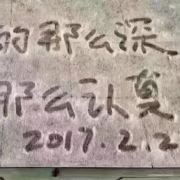 的那么深
那么认真
2017.2.2